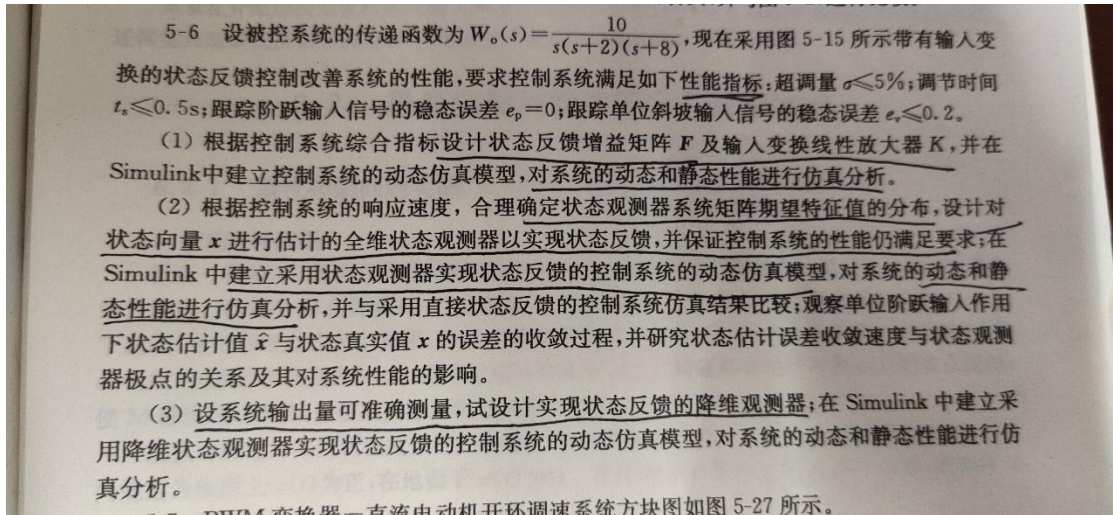 5-6 设被控系统的传递函数为 Wₒ(s)=10/(s(s+2)(s+8)),现在采用图 5-15 所示带有输入变
换的状态反馈控制改善系统的性能,要求控制系统满足如下性能指标:超调量 σ≤5%;调节时间
tₛ≤0.5s;跟踪阶跃输入信号的稳态误差 eₚ=0;跟踪单位斜坡输入信号的稳态误差 eᵥ≤0.2。
(1) 根据控制系统综合指标设计状态反馈增益矩阵 F 及输入变换线性放大器 K,并在
Simulink中建立控制系统的动态仿真模型,对系统的动态和静态性能进行仿真分析。
(2) 根据控制系统的响应速度,合理确定状态观测器系统矩阵期望特征值的分布,设计对
状态向量 x 进行估计的全维状态观测器以实现状态反馈,并保证控制系统的性能仍满足要求;在
Simulink 中建立采用状态观测器实现状态反馈的控制系统的动态仿真模型,对系统的动态和静
态性能进行仿真分析,并与采用直接状态反馈的控制系统仿真结果比较;观察单位阶跃输入作用
下状态估计值 x̂ 与状态真实值 x 的误差的收敛过程,并研究状态估计误差收敛速度与状态观测
器极点的关系及其对系统性能的影响。
(3) 设系统输出量可准确测量,试设计实现状态反馈的降维观测器;在 Simulink 中建立采
用降维状态观测器实现状态反馈的控制系统的动态仿真模型,对系统的动态和静态性能进行仿
真分析。
PWM 变换器—直流电动机开环调速系统方块图如图 5-27 所示。